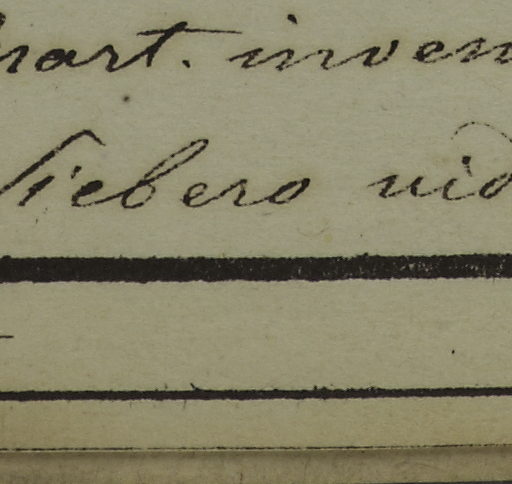 hart. inven
Siebero vid